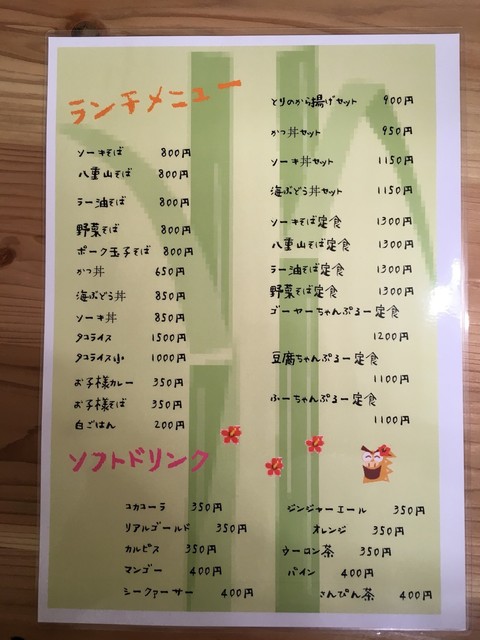 ランチメニュー
ソーキそば 800円
八重山そば 800円
ラー油そば 800円
野菜そば 800円
ポーク玉子そば 800円
かつ丼 650円
海ぶどう丼 850円
ソーキ丼 850円
タコライス 1500円
タコライス小 1000円
お子様カレー 350円
お子様そば 350円
白ごはん 200円
とりのから揚げセット 900円
かつ丼セット 950円
ソーキ丼セット 1150円
海ぶどう丼セット 1150円
ソーキそば定食 1300円
八重山そば定食 1300円
ラー油そば定食 1300円
野菜そば定食 1300円
ゴーヤーちゃんぷるー定食
1200円
豆腐ちゃんぷるー定食
1100円
ふーちゃんぷるー定食
1100円
ソフトドリンク
コカコーラ 350円
リアルゴールド 350円
カルピス 350円
マンゴー 400円
シークァーサー 400円
ジンジャーエール 350円
オレンジ 350円
ウーロン茶 350円
パイン 400円
さんぴん茶 400円